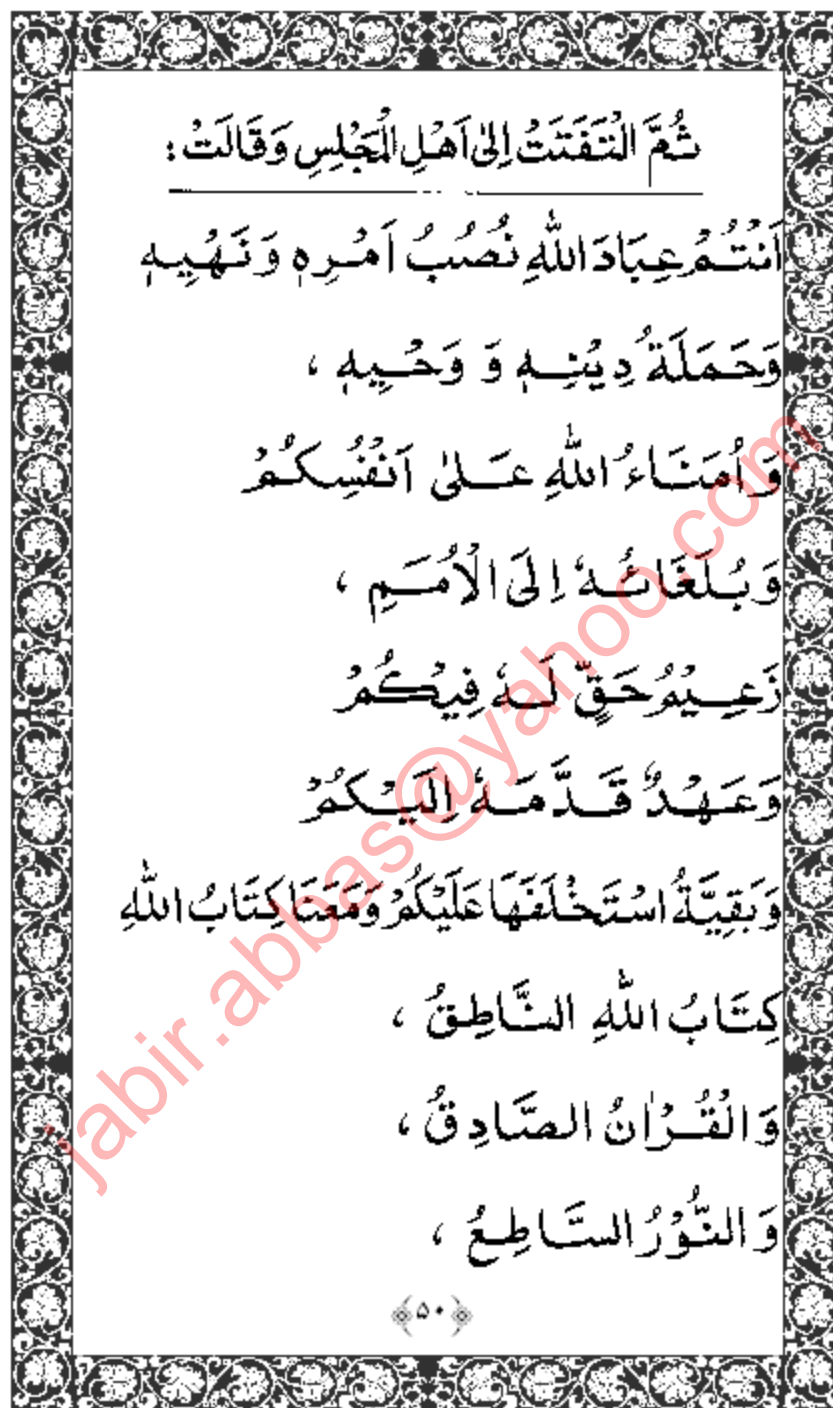 ثُمَّ الْتَفَتَتْ اِلىٰ اَهْلِ الْمَجْلِسِ وَقَالَتْ :
اَنْتُمْ عِبَادَ اللّٰهِ نُصُبُ اَمْرِهٖ وَ نَهْيِهٖ
وَحَمَلَةُ دِيْنِهٖ وَ وَحْيِهٖ ،
وَاُمَنَاءُ اللّٰهِ عَلىٰ اَنْفُسِكُمْ
وَبُلَغَائُهٗ اِلَى الْاُمَمِ ،
زَعِيْمُ حَقٍّ لَهٗ فِيْكُمْ
وَعَهْدٌ قَدَّمَهٗ اِلَيْكُمْ
وَبَقِيَّةُ اسْتَخْلَفَهَا عَلَيْكُمْ وَمَعَنَا كِتَابُ اللّٰهِ
كِتَابُ اللّٰهِ النَّاطِقُ ،
وَالْقُرْاٰنُ الصَّادِقُ ،
وَالنُّوْرُ السَّاطِعُ ،
﴿۵۰﴾
jabir.abbas@yahoo.com